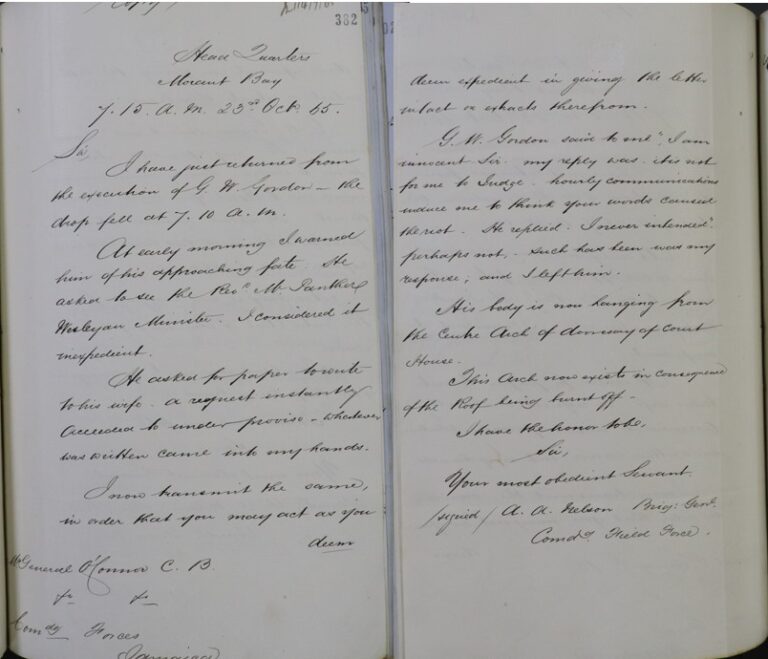 (Copy)
382
Head Quarters
Morant Bay
7.15. A. M. 23rd Oct. 65.
Sir,
I have just returned from
the execution of G. W Gordon – the
drop fell at 7.10 A. M.
At early morning I warned
him of his approaching fate. He
asked to see the Revd. Mr. Panther
Wesleyan Minister. I considered it
inexpedient.
He asked for paper to write
to his wife. a request instantly
acceeded to under proviso – whatever
was written came into my hands.
I now transmit the same,
in order that you may act as you
deem
General O'Connor C. B.
&c &c
Comdg Forces
Jamaica
deem expedient in giving the letter
intact or extracts therefrom.
G. W. Gordon said to me "I am
innocent Sir. my reply was. it is not
for me to Judge. hourly communications
induce me to think your words caused
the riot. He replied. I never intended"
perhaps not. Such has been was my
response; and I left him.
His body is now hanging from
the Centre Arch of doorway of Court
House.
This Arch now exists in consequence
of the Roof being burnt off.
I have the honor to be,
Sir,
Your most obedient Servant.
/signed/ A. A. Nelson Brig: Genl.
Comdg. Field Force.